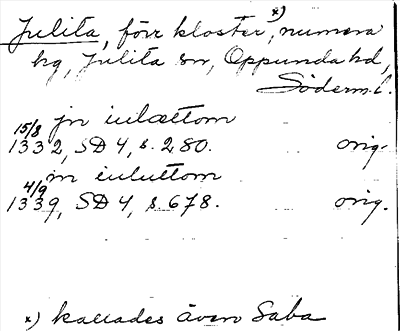 Julita, förr kloster, x) numera
hg, Julita sn, Oppunda hd,
Söderm. l.
15/8 jn iulættom
1332, SD 4, s. 280. orig.
4/9 in iuluttom
1339, SD 4, s. 678. orig.
x) kallades även Saba